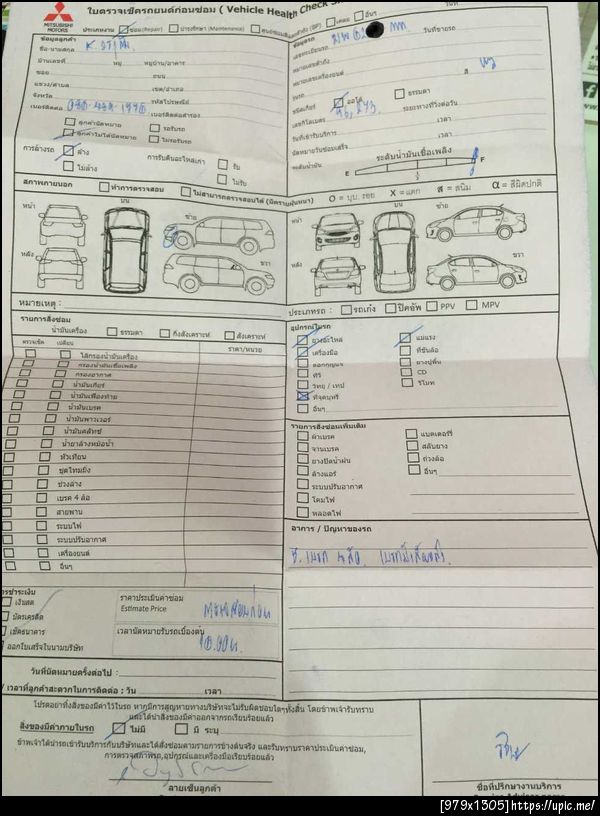 MITSUBISHI
MOTORS
ใบตรวจเช็ครถยนต์ก่อนซ่อม ( Vehicle Health Check
ประเภทงาน ซ่อม(Repair) บำรุงรักษา (Maintenance) (BP) เคลม อื่นๆ
ข้อมูลลูกค้า
ชื่อ-นามสกุล
บ้านเลขที่ หมู่ หมู่บ้าน/อาคาร
ซอย ถนน
แขวง/ตำบล เขต/อำเภอ
จังหวัด รหัสไปรษณีย์
เบอร์ติดต่อ เบอร์ติดต่อสำรอง
ลูกค้านัดหมาย รอรับรถ
ลูกค้าไม่ได้นัดหมาย ไม่รอรับรถ
การล้างรถ ล้าง การรับคืนอะไหล่เก่า รับ
ไม่ล้าง ไม่รับ
ข้อมูลรถ
เลขทะเบียนรถ วันที่ขายรถ
หมายเลขตัวถัง
หมายเลขเครื่องยนต์ สี
รุ่นรถ
ชนิดเกียร์ ออโต้ ธรรมดา
เลขกิโลเมตร 96,273 ระยะทางที่วิ่งต่อวัน
วันที่เข้ารับบริการ เวลา
นัดหมายวันซ่อมเสร็จ เวลา
ระดับน้ำมัน ระดับน้ำมันเชื้อเพลิง
E ½ F
สภาพภายนอก ทำการตรวจสอบ ไม่สามารถตรวจสอบได้ (มีคราบฝุ่นหนา) O = บุบ, รอย X = แตก ส = สนิม α = สีผิดปกติ
หน้า บน ซ้าย หน้า บน ซ้าย
หลัง ขวา หลัง ขวา
หมายเหตุ :
ประเภทรถ : รถเก๋ง ปิคอัพ PPV MPV
รายการสั่งซ่อม
น้ำมันเครื่อง ธรรมดา กึ่งสังเคราะห์ สังเคราะห์
ตรวจเช็ค เปลี่ยน ราคา/หน่วย
ไส้กรองน้ำมันเครื่อง
กรองน้ำมันเชื้อเพลิง
กรองอากาศ
น้ำมันเกียร์
น้ำมันเฟืองท้าย
น้ำมันเบรค
น้ำมันพาวเวอร์
น้ำมันคลัทช์
น้ำยาล้างหม้อน้ำ
หัวเทียน
ชุดไทมิ่ง
ช่วงล่าง
เบรค 4 ล้อ
สายพาน
ระบบไฟ
ระบบปรับอากาศ
เครื่องยนต์
อื่นๆ
อุปกรณ์ในรถ
ยางอะไหล่ แม่แรง
เครื่องมือ ที่ขันล้อ
ดอกกุญแจ ยางปูพื้น
ซีรี่ CD
วิทยุ / เทป รีโมท
ที่จุดบุหรี่
อื่นๆ
รายการสั่งซ่อมเพิ่มเติม
ผ้าเบรค แบตเตอร์รี่
จานเบรค สลับยาง
ยางปัดน้ำฝน ถ่วงล้อ
ล้างแอร์ อื่นๆ
ระบบปรับอากาศ
โคมไฟ
หลอดไฟ
อาการ / ปัญหาของรถ
การชำระเงิน
เงินสด
บัตรเครดิต
เช็คธนาคาร
ออกใบเสร็จในนามบริษัท
ราคาประเมินค่าซ่อม
Estimate Price
เวลานัดหมายรับรถเบื้องต้น
วันที่นัดหมายครั้งต่อไป :
/ เวลาที่ลูกค้าสะดวกในการติดต่อ : วัน เวลา
โปรดอย่าทิ้งสิ่งของมีค่าไว้ในรถ หากมีการสูญหายทางบริษัทจะไม่รับผิดชอบใดๆทั้งสิ้น โดยข้าพเจ้ารับทราบ
และได้นำสิ่งของมีค่าออกจากรถเรียบร้อยแล้ว
สิ่งของมีค่าภายในรถ ไม่มี มี ระบุ
ข้าพเจ้าได้นำรถเข้ารับบริการกับบริษัทและได้สั่งซ่อมตามรายการข้างต้นจริง และรับทราบราคาประเมินค่าซ่อม,
การตรวจสภาพรถ,อุปกรณ์และเครื่องมือเรียบร้อยแล้ว
ลายเซ็นลูกค้า
ชื่อที่ปรึกษางานบริการ
[979x1305]https://upic.me/